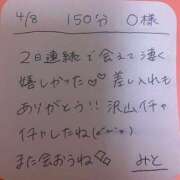 4/8 150分 O様
2日連続で会えて凄く
嬉しかった♡♡差し入れも
ありがとう!!沢山イチャ
イチャしたね(*´ω`*)
また会おうね
みと